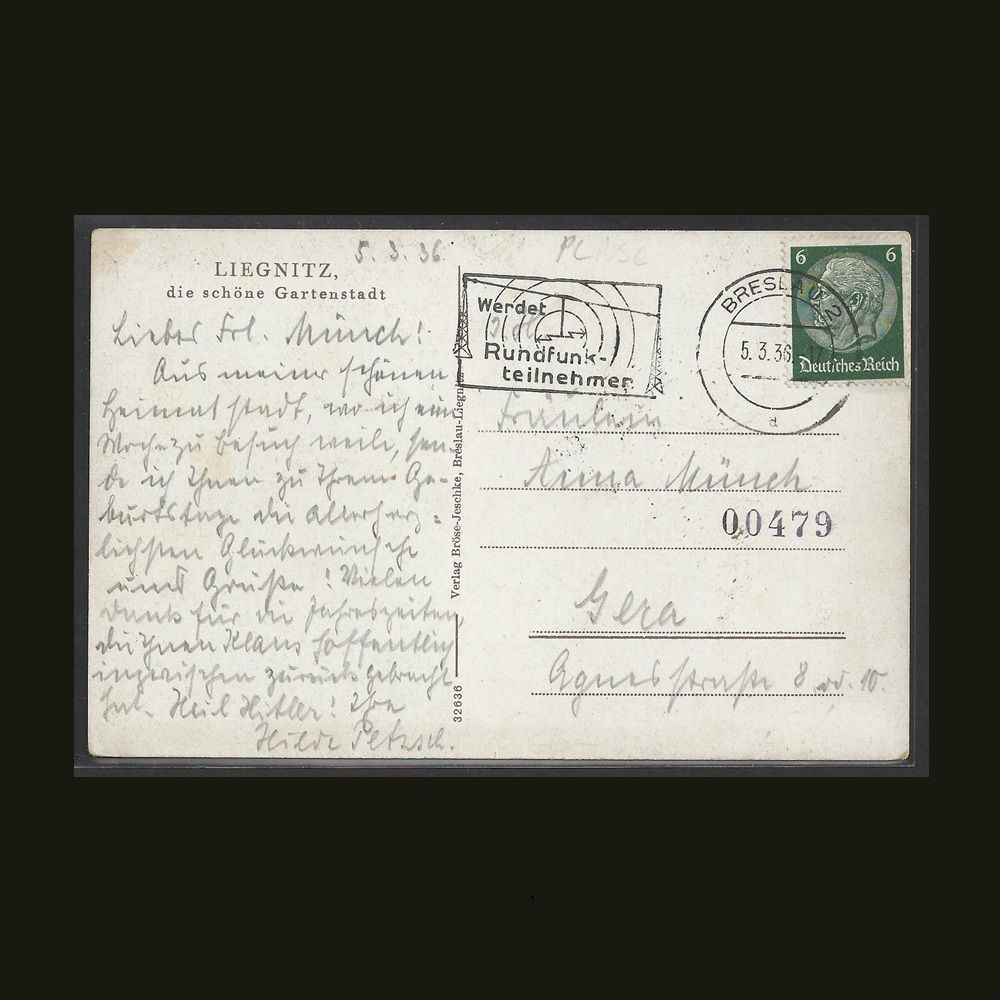 5. 3. 36.
LIEGNITZ,
die schöne Gartenstadt
Liebes Frl. Münch!
Aus meiner schönen
Heimatstadt, wo ich eine
Woche zu Besuch weile, sen-
de ich Ihnen zu Ihrem Ge-
burtstage die allerherz=
lichsten Glückwünsche
und Grüße! Vielen
Dank für die Jahreszeiten,
die Ihnen Klaus hoffentlich
inzwischen zurück gebracht
hat. Heil Hitler! Ihre
Hilde Petzsch.
Verlag Bröse-Jeschke, Breslau-Liegnitz
32636
Werdet
Rundfunk-
teilnehmer
BRESLAU 2
5. 3. 36
a
6 6
Deutsches Reich
Fräulein
Anna Münch
00479
Gera
Agnesstraße 8 od. 10